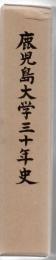 鹿児島大学三十年史